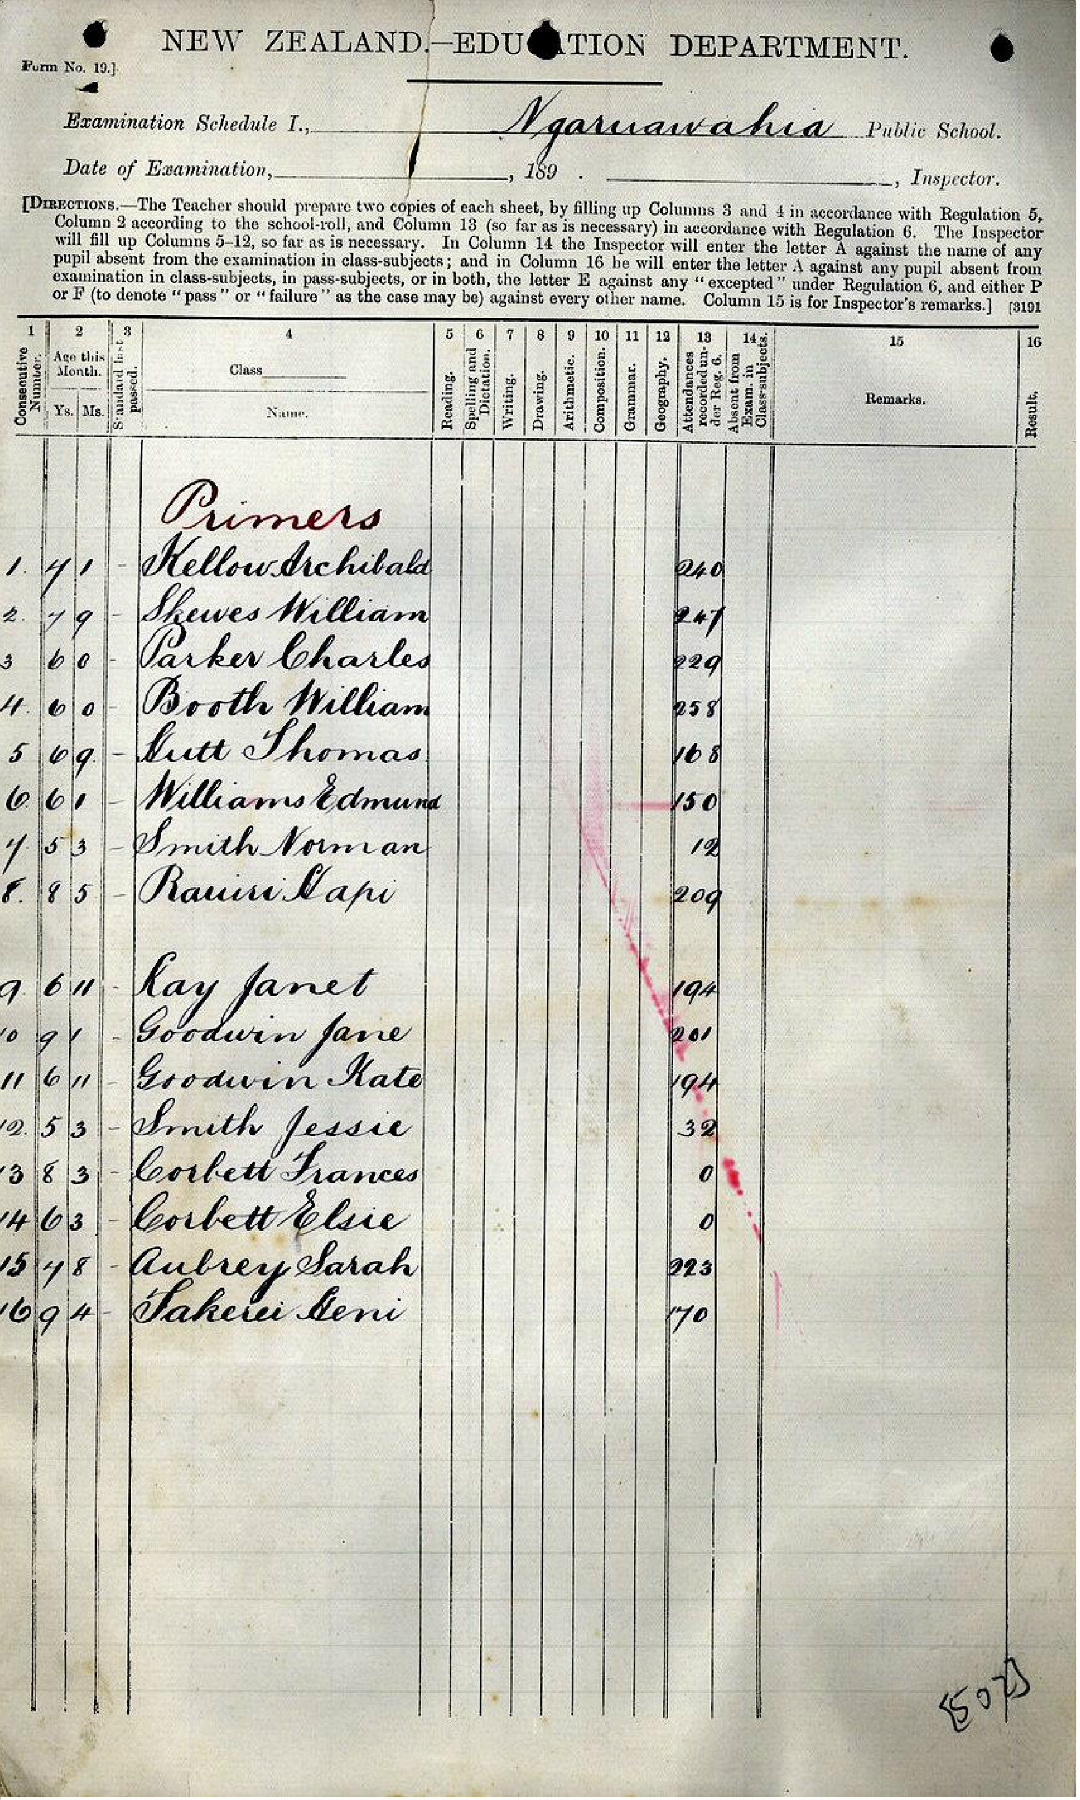 NEW ZEALAND.—EDUCATION DEPARTMENT.
Form No. 19.]
Examination Schedule I., Ngaruawahia Public School.
Date of Examination, , 189 . , Inspector.
[DIRECTIONS.—The Teacher should prepare two copies of each sheet, by filling up Columns 3 and 4 in accordance with Regulation 5,
Column 2 according to the school-roll, and Column 13 (so far as is necessary) in accordance with Regulation 6. The Inspector
will fill up Columns 5–12, so far as is necessary. In Column 14 the Inspector will enter the letter A against the name of any
pupil absent from the examination in class-subjects; and in Column 16 he will enter the letter A against any pupil absent from
examination in class-subjects, in pass-subjects, or in both, the letter E against any "excepted" under Regulation 6, and either P
or F (to denote "pass" or "failure" as the case may be) against every other name. Column 15 is for Inspector's remarks.] [3191
1 2 3 4 5 6 7 8 9 10 11 12 13 14 15 16
Consecutive Number.
Age this Month.
Ys. Ms.
Standard last passed.
Class
Name.
Reading.
Spelling and Dictation.
Writing.
Drawing.
Arithmetic.
Composition.
Grammar.
Geography.
Attendances recorded under Reg. 6.
Absent from Exam. in Class-subjects.
Remarks.
Result.
Primers
1. 7 1 - Kellow Archibald 240
2. 7 9 - Skewes William 247
3 6 0 - Parker Charles 229
4. 6 0 - Booth William 258
5 6 9. - Hutt Thomas 168
6. 6 1 - Williams Edmund 150
7. 5 3 - Smith Norman 12
8. 8 5 - Rauiri Hapi 209
9. 6 11 - Kay Janet 194
10 9 1 - Goodwin Jane 201
11 6 11 - Goodwin Kate 194
12. 5 3 - Smith Jessie 32
13 8 3 - Corbett Frances 0
14 6 3 - Corbett Elsie 0
15 7 8 - Aubrey Sarah 223
16 9 4 - Takerei Heni 170